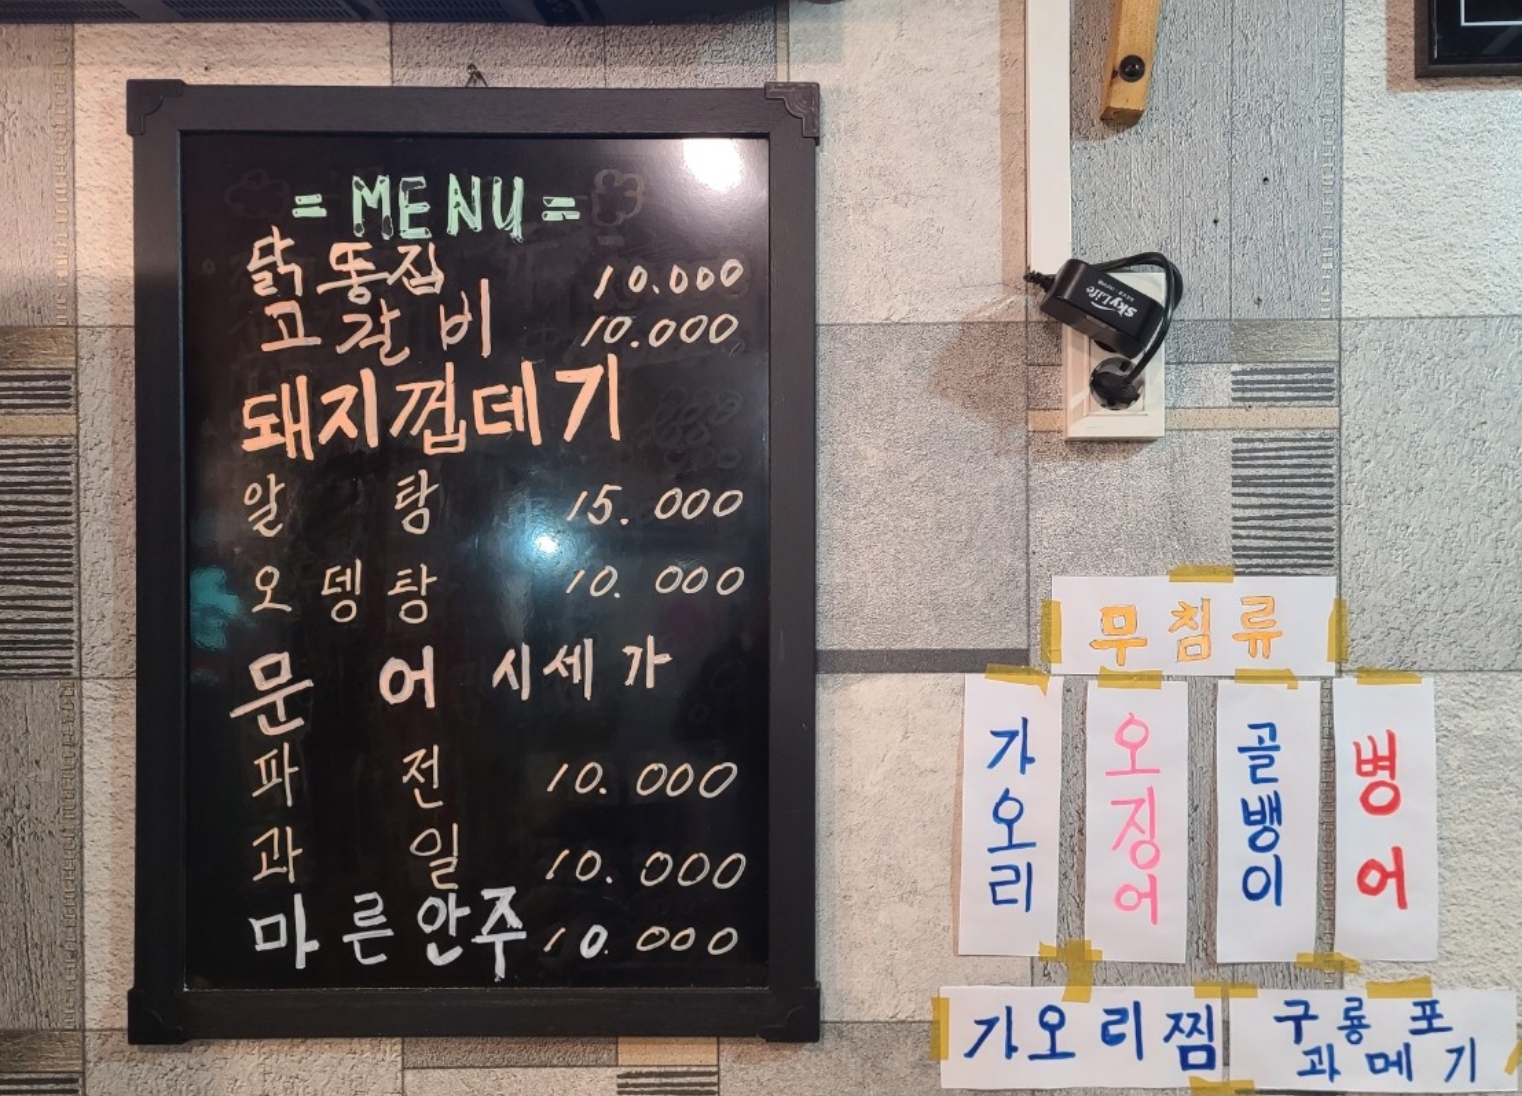 = MENU =
닭똥집 10.000
고갈비 10.000
돼지껍데기
알 탕 15.000
오뎅탕 10.000
문 어 시세가
파 전 10.000
과 일 10.000
마른안주 10.000
skyLife
무침류
가오리
오징어
골뱅이
병어
가오리찜
구룡포
과메기